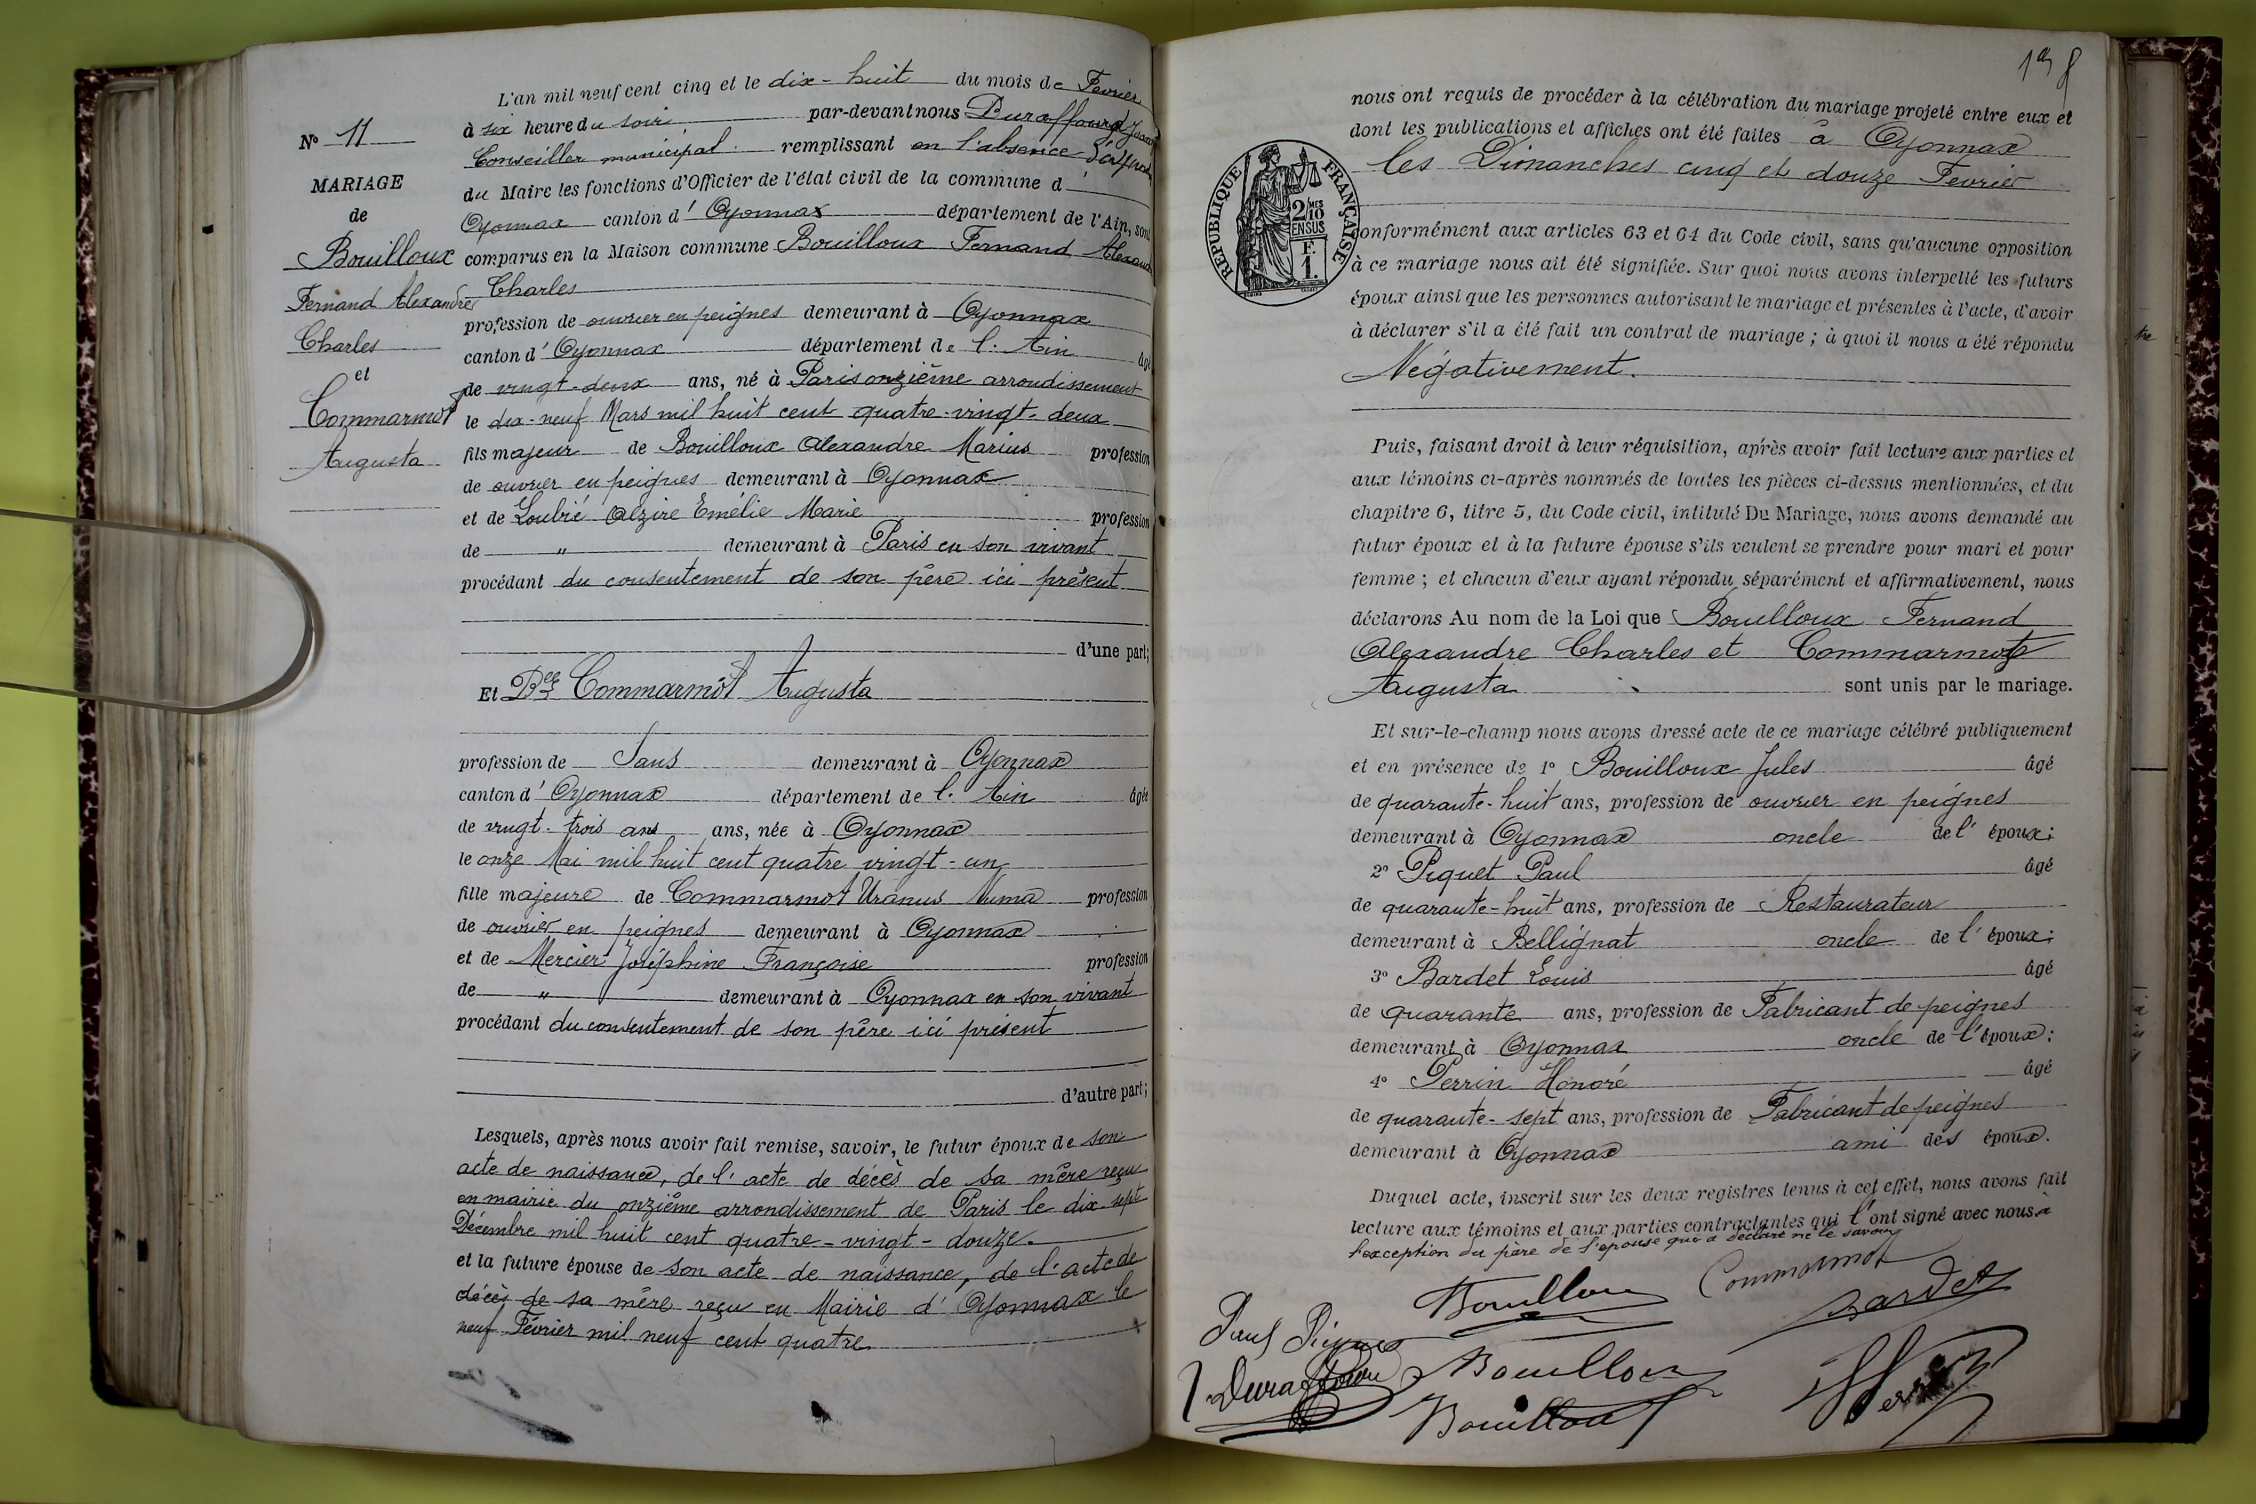 L'an mil neuf cent cinq et le dix-huit du mois de Fevrier
à six heure du soir par-devant nous Duraffourg
Conseiller municipal remplissant en l'absence
du Maire les fonctions d'Officier de l'état civil de la commune d'
Oyonnax canton d' Oyonnax département de l'Ain, sont
comparus en la Maison commune Bouilloux Fernand Alexandre
Charles
profession de ouvrier en peignes demeurant à Oyonnax
canton d' Oyonnax département de l'Ain âgé
de vingt-deux ans, né à Paris onzième arrondissement
le dix-neuf Mars mil huit cent quatre-vingt-deux
fils majeur de Bouilloux Alexandre Marius profession
de ouvrier en peignes demeurant à Oyonnax
et de Loubié Alzire Emélie Marie profession
de " demeurant à Paris en son vivant
procédant du consentement de son père ici présent
d'une part;
Et Delle Commarmot Augusta
profession de Sans demeurant à Oyonnax
canton d' Oyonnax département de l'Ain âgée
de vingt-trois ans ans, née à Oyonnax
le onze Mai mil huit cent quatre vingt-un
fille majeure de Commarmot Uranus Numa profession
de ouvrier en peignes demeurant à Oyonnax
et de Mercier Joséphine Françoise profession
de " demeurant à Oyonnax en son vivant
procédant du consentement de son père ici présent
d'autre part;
Lesquels, après nous avoir fait remise, savoir, le futur époux de son
acte de naissance, de l'acte de décès de sa mère reçu
en mairie du onzième arrondissement de Paris le dix-sept
Décembre mil huit cent quatre-vingt-douze.
et la future épouse de son acte de naissance, de l'acte de
décès de sa mère reçu en Mairie d'Oyonnax le
neuf Février mil neuf cent quatre
No 11
MARIAGE
de
Bouilloux
Fernand Alexandre
Charles
et
Commarmot
Augusta
nous ont requis de procéder à la célébration du mariage projeté entre eux et
dont les publications et affiches ont été faites à Oyonnax
les Dimanches cinq et douze Fevrier
conformément aux articles 63 et 64 du Code civil, sans qu'aucune opposition
à ce mariage nous ait été signifiée. Sur quoi nous avons interpellé les futurs
époux ainsi que les personnes autorisant le mariage et présentes à l'acte, d'avoir
à déclarer s'il a été fait un contrat de mariage ; à quoi il nous a été répondu
Négativement.
RÉPUBLIQUE FRANÇAISE
2/10MES
EN SUS
F.
1.
Puis, faisant droit à leur réquisition, après avoir fait lecture aux parties et
aux témoins ci-après nommés de toutes les pièces ci-dessus mentionnées, et du
chapitre 6, titre 5, du Code civil, intitulé Du Mariage, nous avons demandé au
futur époux et à la future épouse s'ils veulent se prendre pour mari et pour
femme ; et chacun d'eux ayant répondu séparément et affirmativement, nous
déclarons Au nom de la Loi que Bouilloux Fernand
Alexandre Charles et Commarmot
Augusta sont unis par le mariage.
Et sur-le-champ nous avons dressé acte de ce mariage célébré publiquement
et en présence de 1° Bouilloux Jules âgé
de quarante-huit ans, profession de ouvrier en peignes
demeurant à Oyonnax oncle de l'époux;
2° Piquet Paul âgé
de quarante-huit ans, profession de Restaurateur
demeurant à Bellignat oncle de l'époux;
3° Bardet Louis âgé
de quarante ans, profession de Fabricant de peignes
demeurant à Oyonnax oncle de l'époux;
4° Perrin Honoré âgé
de quarante-sept ans, profession de Fabricant de peignes
demeurant à Oyonnax ami des époux.
Duquel acte, inscrit sur les deux registres tenus à cet effet, nous avons fait
lecture aux témoins et aux parties contractantes qui l'ont signé avec nous à
l'exception du père de l'épouse qui a déclaré ne le savoir
Bouilloux Commarmot
Bardet
Duraffourg Bouilloux
Bouilloux